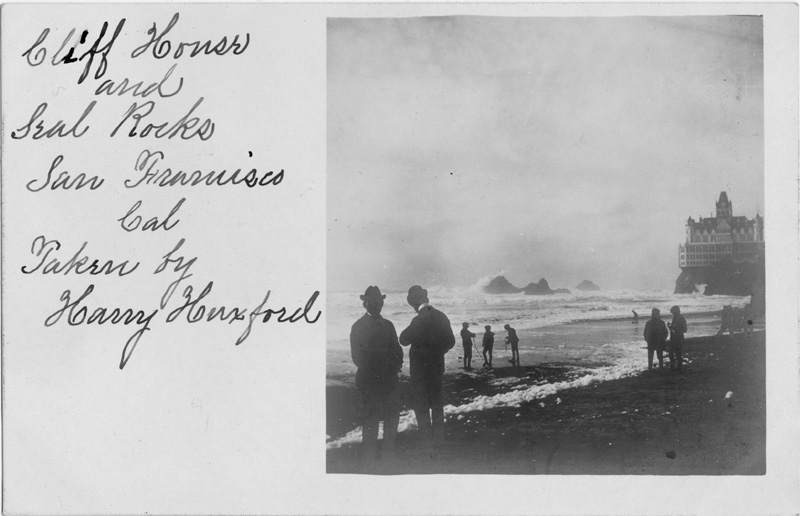 Cliff House
and
Seal Rocks
San Francisco
Cal
Taken by
Harry Huxford